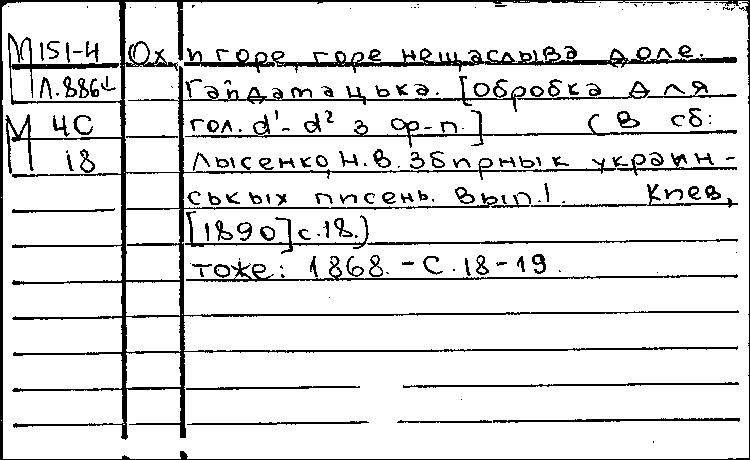 М 151-4 Ох, и горе, горе нещаслыва доле.
Л.886 Гайдамацька. [Обробка для
М 4С гол. d¹-d² з ф-п.] (В сб:
18 Лысенко, Н.В. Збирнык украин-
ськых писень. Вып.1. Киев,
[1890] с.18.)
тоже: 1868. - С.18-19.